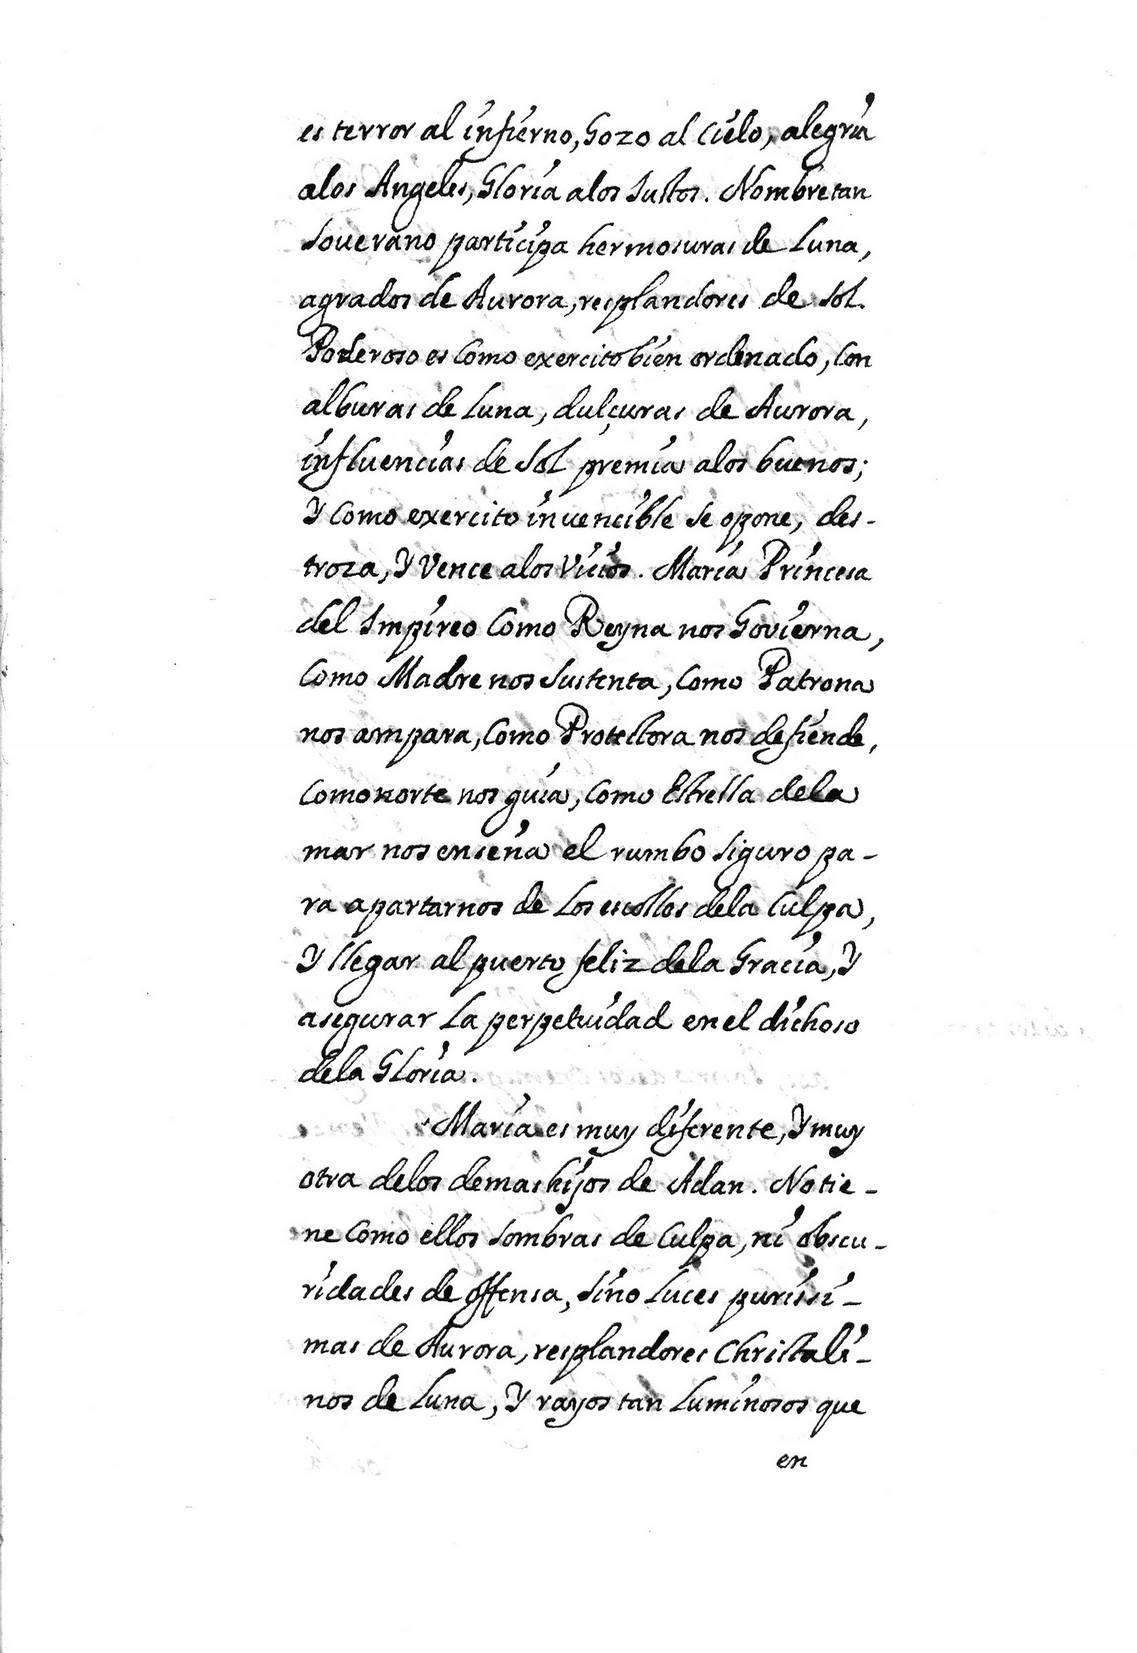 es terror al infierno, Gozo al Cielo, alegria
alos Angeles, Gloria alos Justos. Nombre tan
Soverano participa hermosuras de Luna,
agrados de Aurora, resplandores de Sol.
Poderoso es como exercito bien ordenado, Con
alburas de Luna, dulçuras de Aurora,
influencias de Sol premia alos buenos;
Y Como exercito invencible se opone, des-
troza, Y Vence alos Vicios. Maria Princesa
del Impireo Como Reyna nos Govierna,
Como Madre nos Sustenta, Como Patrona
nos ampara, Como Protectora nos defiende,
Como norte nos guia, Como Estrella dela
mar nos enseña el rumbo siguro pa-
ra apartarnos de Los escollos dela Culpa,
Y llegar al puerto feliz dela Gracia, Y
asegurar La perpetuidad en el dichoso
dela Gloria.
Maria es muy diferente, Y muy
otra delos demas hijos de Adan. No tie-
ne Como ellos sombras de Culpa, ni obscu-
ridades de offensa, sino Luces purissi-
mas de Aurora, resplandores Christali-
nos de Luna, Y rayos tan Luminosos que
en